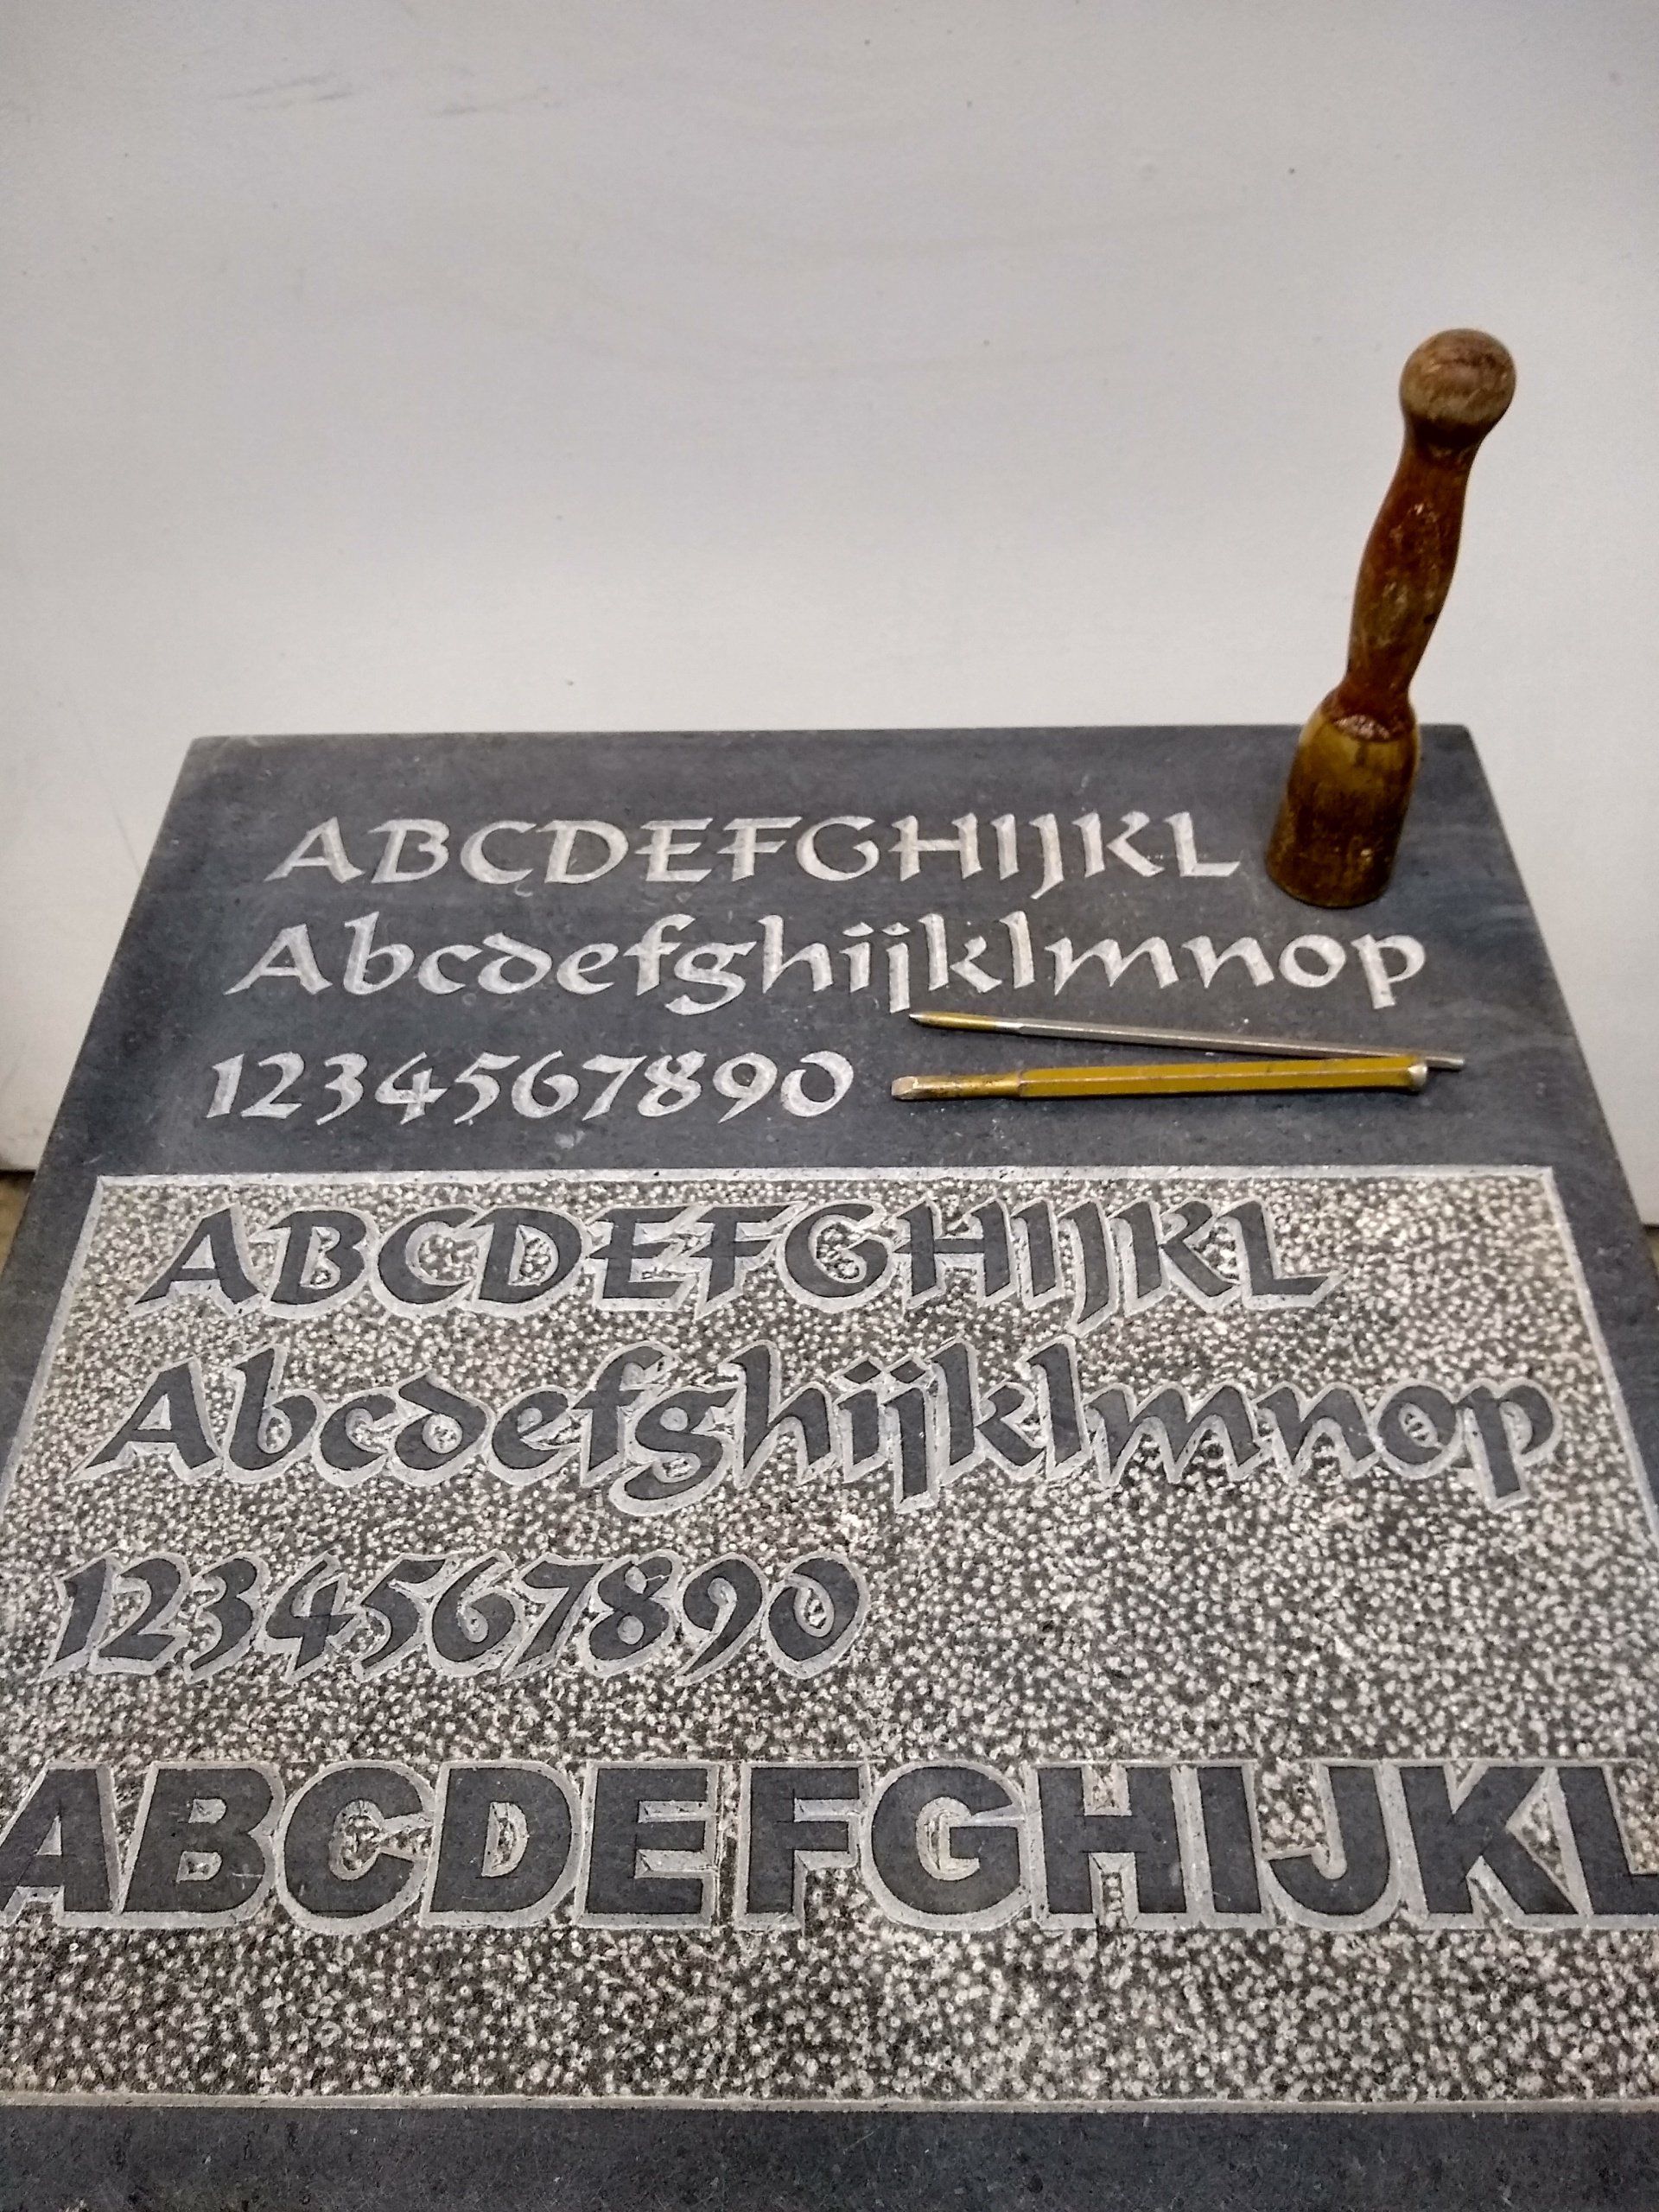 ABCDEFGHIJKL
Abcdefghijklmnop
1234567890
ABCDEFGHIJKL
Abcdefghijklmnop
1234567890
ABCDEFGHIJKL